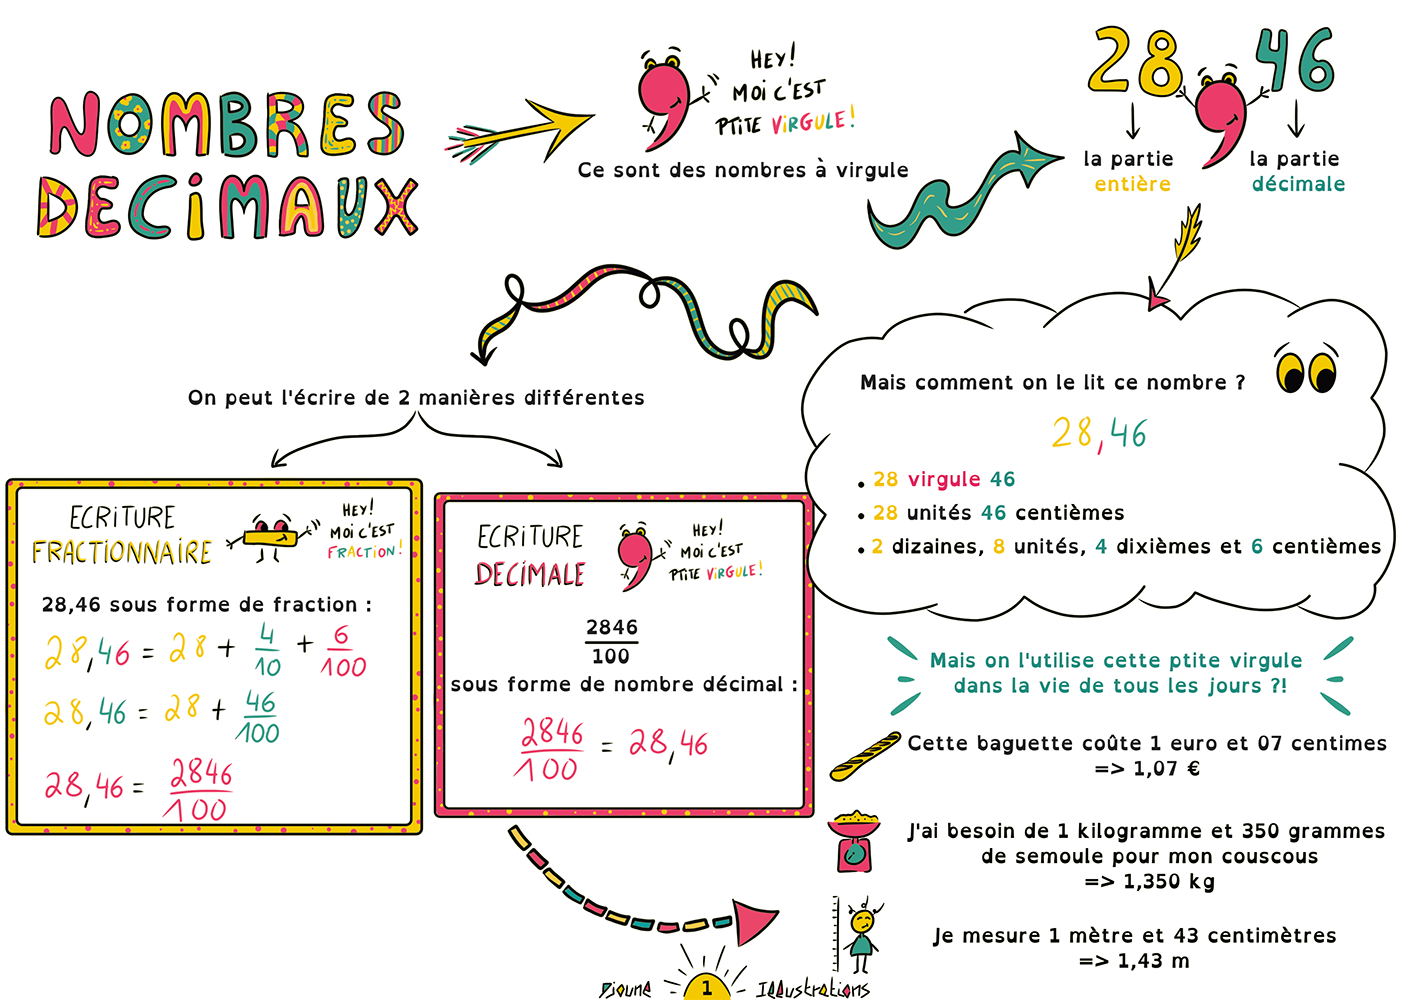 NOMBRES
DECIMAUX
HEY!
MOI C'EST
PTITE VIRGULE!
Ce sont des nombres à virgule
28 46
la partie
entière
la partie
décimale
Mais comment on le lit ce nombre ?
28,46
• 28 virgule 46
• 28 unités 46 centièmes
• 2 dizaines, 8 unités, 4 dixièmes et 6 centièmes
On peut l'écrire de 2 manières différentes
ECRITURE
FRACTIONNAIRE
HEY!
MOI C'EST
FRACTION!
28,46 sous forme de fraction :
28,46 = 28 + 4/10 + 6/100
28,46 = 28 + 46/100
28,46 = 2846/100
ECRITURE
DECIMALE
HEY!
MOI C'EST
PTITE VIRGULE!
2846
100
sous forme de nombre décimal :
2846/100 = 28,46
Mais on l'utilise cette ptite virgule
dans la vie de tous les jours ?!
Cette baguette coûte 1 euro et 07 centimes
=> 1,07 €
J'ai besoin de 1 kilogramme et 350 grammes
de semoule pour mon couscous
=> 1,350 kg
Je mesure 1 mètre et 43 centimètres
=> 1,43 m
1 Illustrations